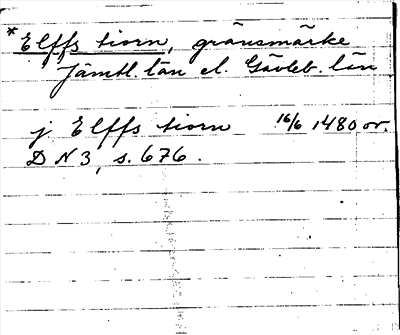 *Elffs tiorn, gränsmärke
Jämtl. län el. Gävleb. län
j Elffs tiorn 16/6 1480 or.
DN 3, s. 676.